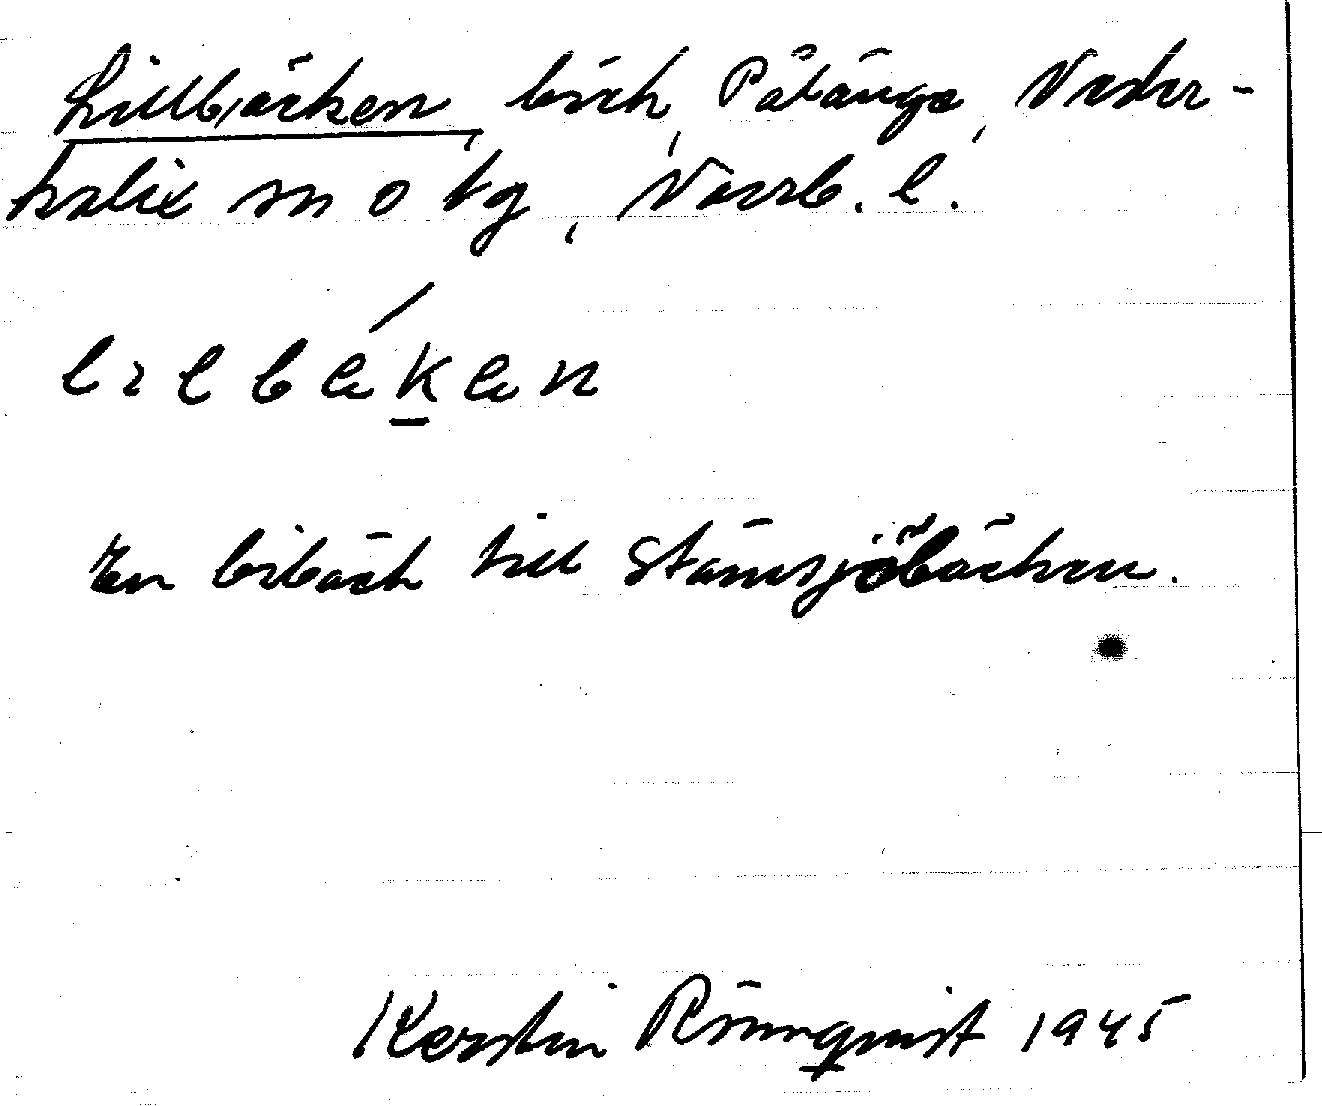 Lillbäcken, bäck, Påtänge, Neder-
kalix sn o tg, Norrb. l.
En bibäck till Stämsjöbäcken.
Kerstin Rönnqvist 1945